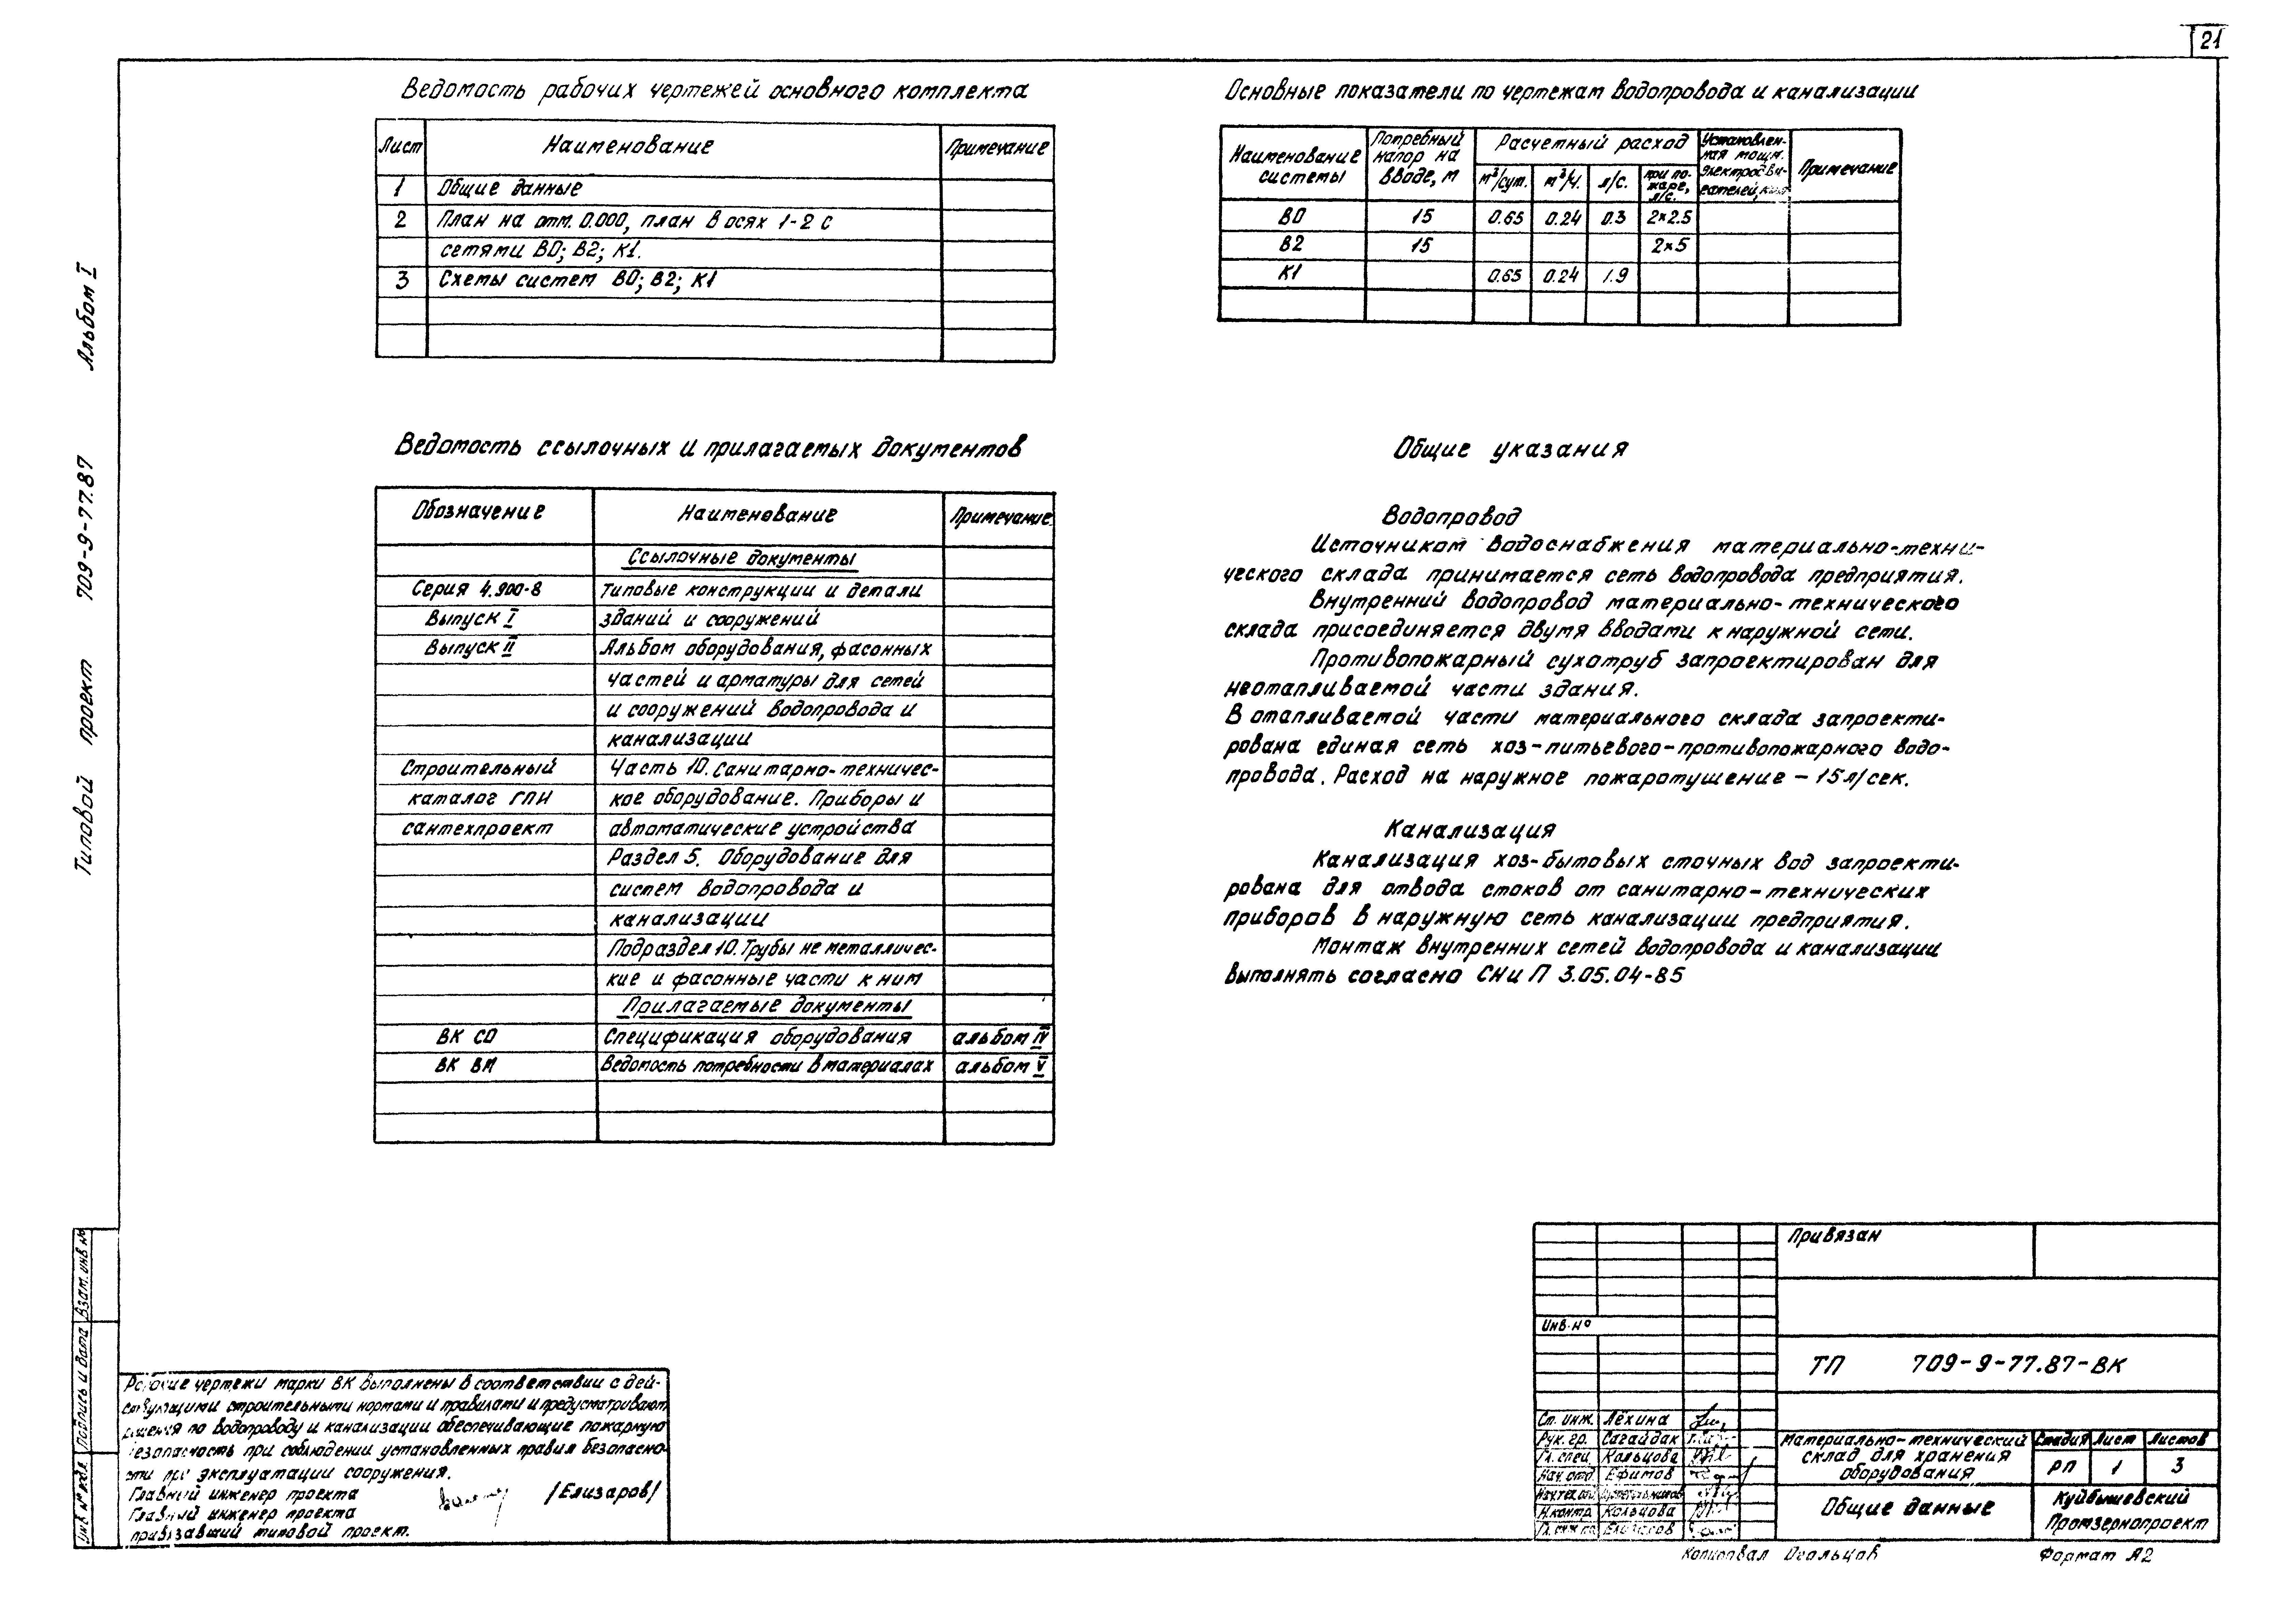 21
Ведомость рабочих чертежей основного комплекта
Лист Наименование Примечание
1 Общие данные
2 План на отм. 0.000, план в осях 1-2 с
сетями В0; В2; К1.
3 Схемы систем В0; В2; К1
Основные показатели по чертежам водопровода и канализации
Наименование системы
Потребный напор на вводе, м
Расчетный расход
м³/сут. м³/ч. л/с. при пожаре, л/с.
Установленная мощн.
Примечание
В0 15 0.65 0.24 0.3 2×2.5
В2 15 2×5
К1 0.65 0.24 1.9
Альбом I
Типовой проект 709-9-77.87
Ведомость ссылочных и прилагаемых документов
Обозначение Наименование Примечание
Ссылочные документы
Серия 4.900-8 Типовые конструкции и детали
Выпуск I зданий и сооружений
Выпуск II Альбом оборудования, фасонных
частей и арматуры для сетей
и сооружений водопровода и
канализации
Строительный Часть 10. Санитарно-техничес-
каталог ГПИ кое оборудование. Приборы и
сантехпроект автоматические устройства
Раздел 5. Оборудование для
систем водопровода и
канализации
Подраздел 10. Трубы не металличес-
кие и фасонные части к ним
Прилагаемые документы
ВК СО Спецификация оборудования альбом IV
ВК ВМ Ведомость потребности в материалах альбом V
Общие указания
Водопровод
Источником водоснабжения материально-техни-
ческого склада принимается сеть водопровода предприятия.
Внутренний водопровод материально-технического
склада присоединяется двумя вводами к наружной сети.
Противопожарный сухотруб запроектирован для
неотапливаемой части здания.
В отапливаемой части материального склада запроекти-
рована единая сеть хоз-питьевого-противопожарного водо-
провода. Расход на наружное пожаротушение - 15 л/сек.
Канализация
Канализация хоз-бытовых сточных вод запроекти-
рована для отвода стоков от санитарно-технических
приборов в наружную сеть канализации предприятия.
Монтаж внутренних сетей водопровода и канализации
выполнять согласно СНиП 3.05.04-85
Взам. инв №
Подпись и дата
Инв № подл.
Рабочие чертежи марки ВК выполнены в соответствии с дей-
ствующими строительными нормами и правилами и предусматривают
решения по водопроводу и канализации обеспечивающие пожарную
безопасность при соблюдении установленных правил безопасно-
сти при эксплуатации сооружения.
Главный инженер проекта /Елизаров/
Главный инженер проекта
привязавший типовой проект.
Привязан
Инв. №
ТП 709-9-77.87-ВК
Ст. инж. Лёхина
Рук. гр. Сагайдак
Гл. спец. Кольцова
Нач. отд. Ефимов
Н.контр. Кольцова
Гл. инж. пр. Елизаров
Материально-технический
склад для хранения
оборудования
Стадия Лист Листов
РП 1 3
Общие данные
Куйбышевский
Промзернопроект
Копировал Огольцов Формат А2